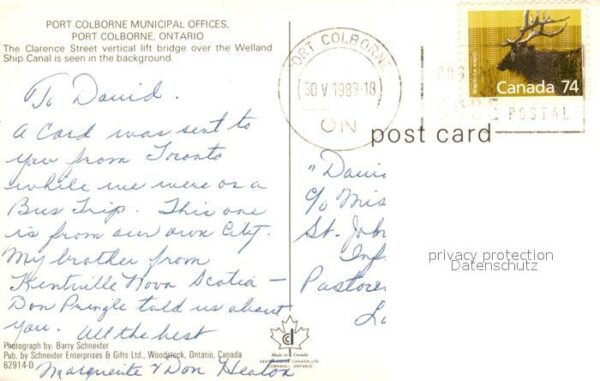 PORT COLBORNE MUNICIPAL OFFICES,
PORT COLBORNE, ONTARIO
The Clarence Street vertical lift bridge over the Welland
Ship Canal is seen in the background.
To David.
A Card was sent to
you from Toronto
while we were on a
Bus Trip. This one
is from our own City.
My brother from
Kentville Nova Scotia —
Don Pringle told us about
you. All the best
Marguerite & Don Heaton
Photograph by: Barry Schneider
Pub. by Schneider Enterprises & Gifts Ltd., Woodstock, Ontario, Canada
62914-D
PORT COLBORNE
30 V 1989-18
ON
Canada 74
POSTAL
post card
"David
c/o Mis
St. Joh
Inf
Pastore
privacy protection
Datenschutz
Made in Canada